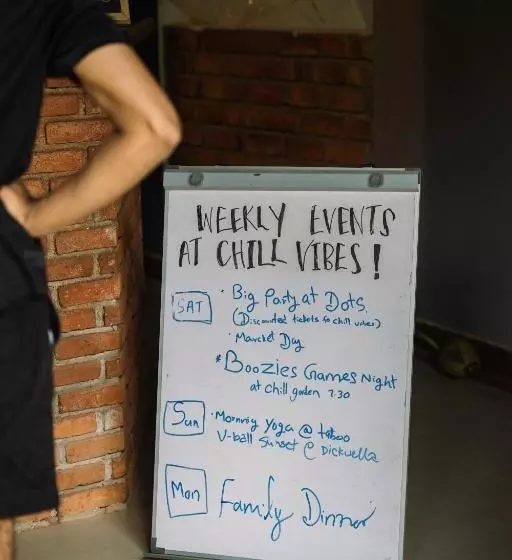 WEEKLY EVENTS
AT CHILL VIBES!
SAT
· Big Party at Dots.
(Discounted tickets to chill vibes)
· Market Day
* Boozies Games Night
at chill garden 7.30
Sun
· Morning Yoga @ taboo
V-ball Sunset @ Dickwella
Mon
Family Dinner